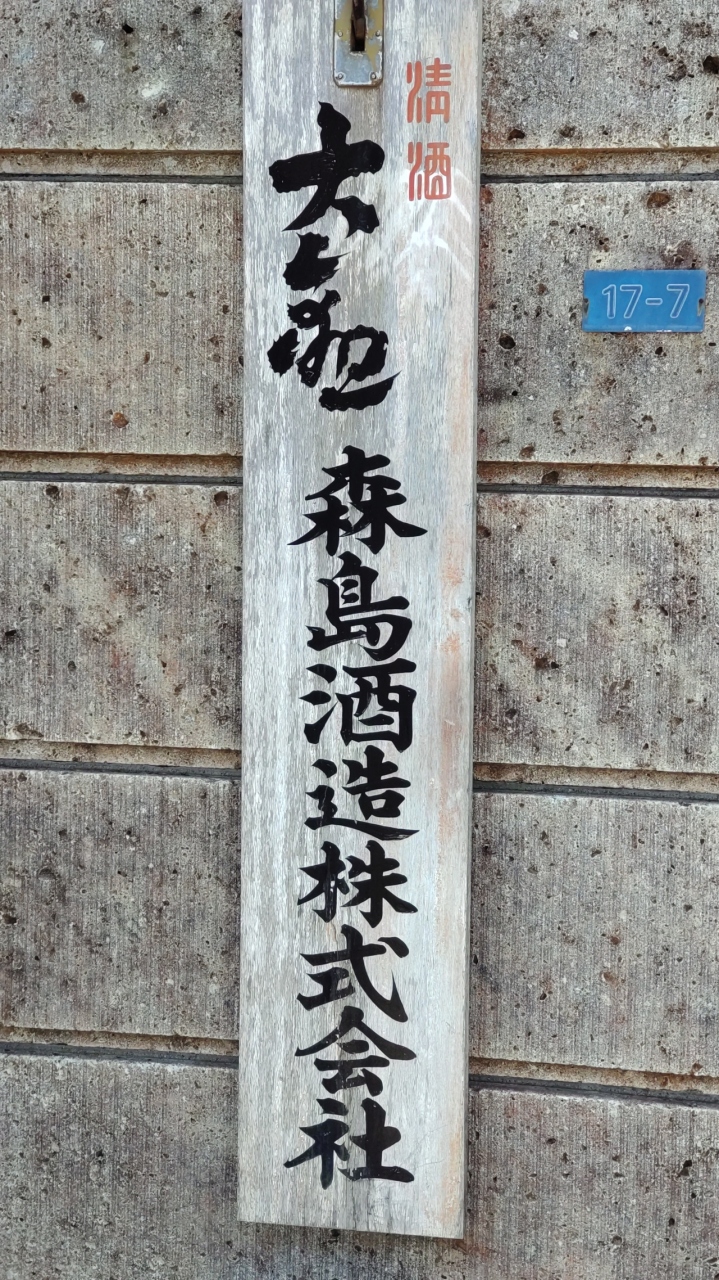 清酒
大観
森島酒造株式会社
17-7